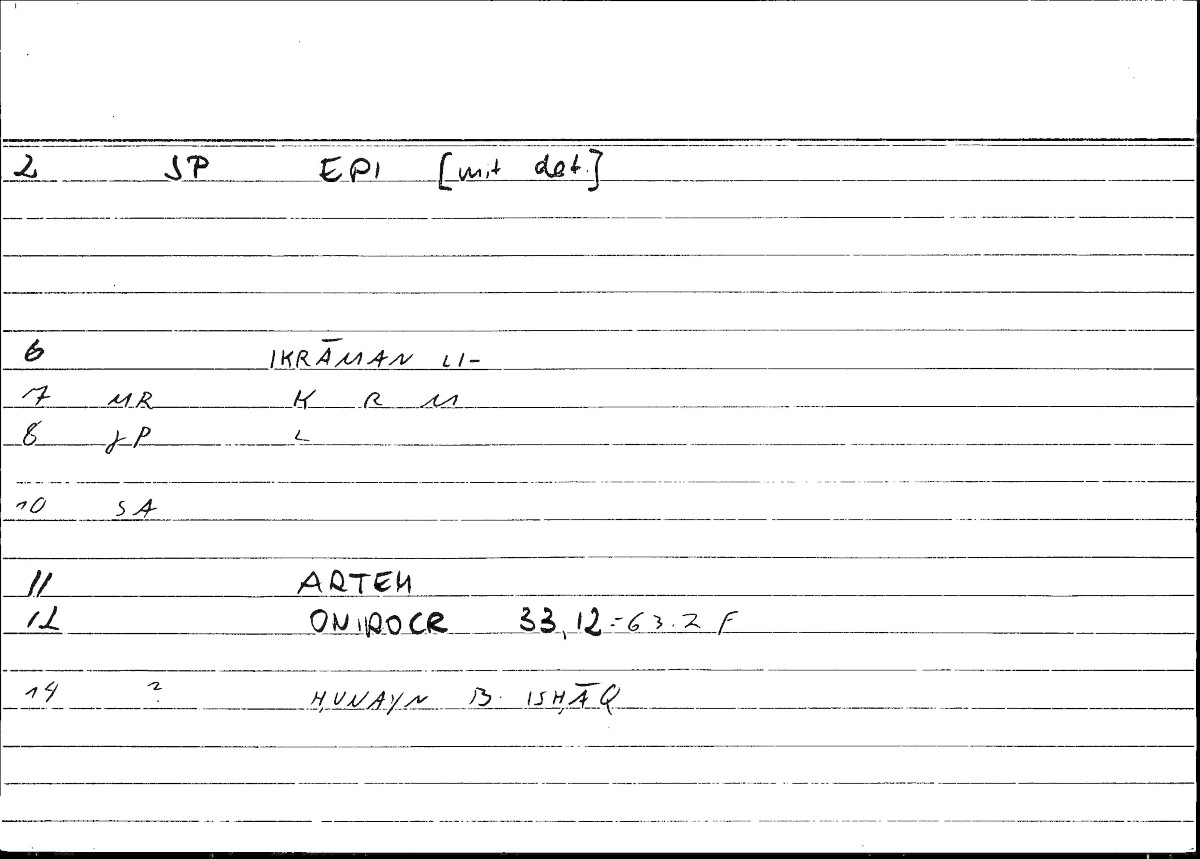 2 JP EPI [mit det.]
6 IKRĀMAN LI-
7 MR K R M
8 JP L
10 SA
11 ARTEM
12 ONIROCR 33,12 = 63.2 F
14 ? ḤUNAYN B. ISḤĀQ